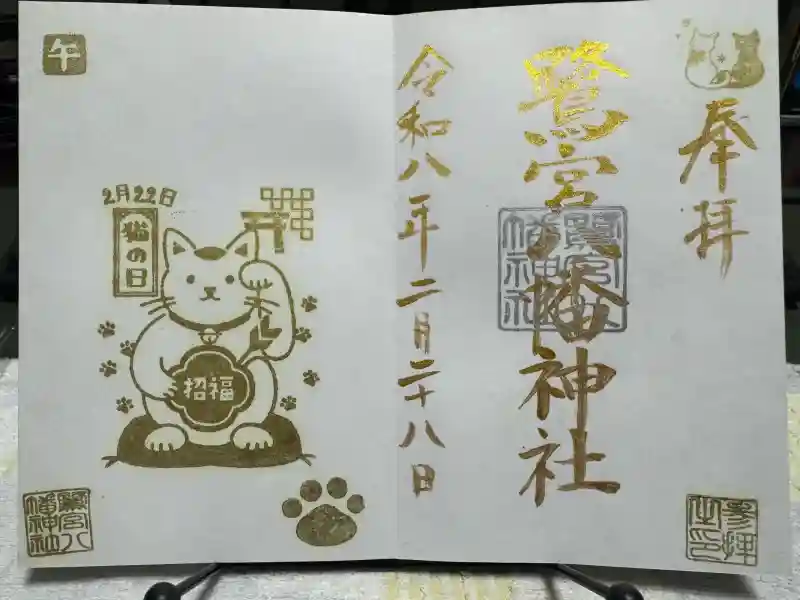 奉拝
鷺宮八幡神社
鷺宮八
幡神社
參拝
之印
令和八年二月二十八日
午
2月22日
猫の日
招福
鷺宮八
幡神社